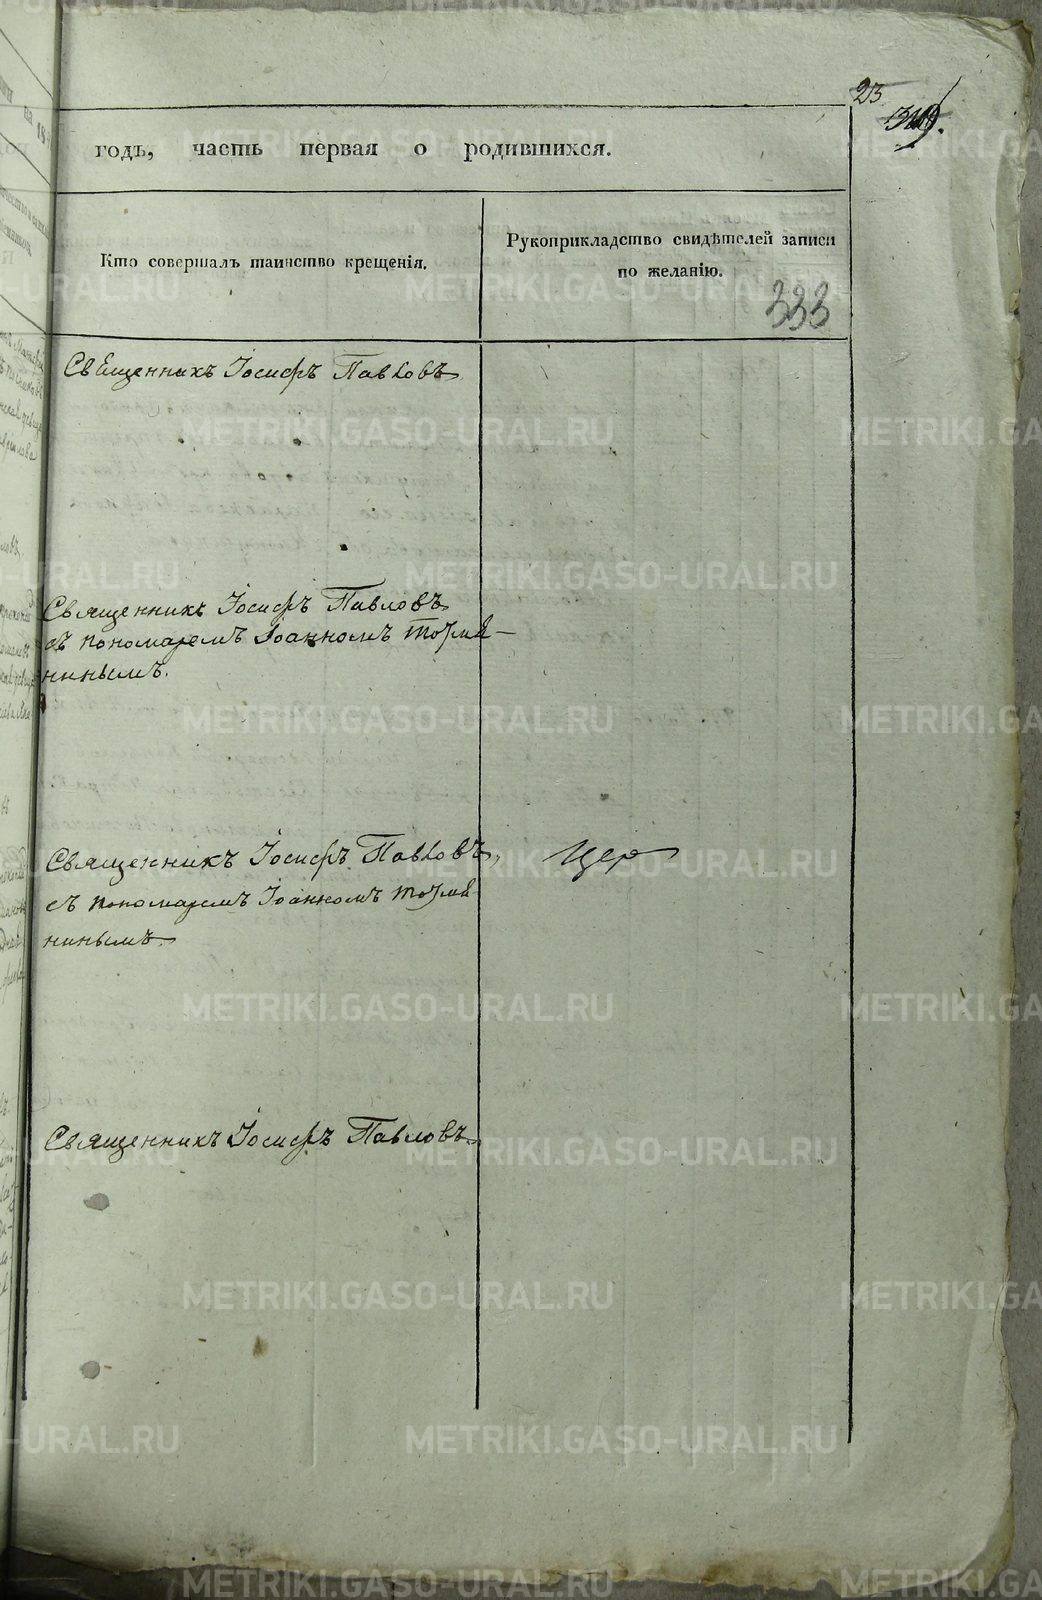 23
годъ, часть первая о родившихся.
Кто совершалъ таинство крещенія.
Рукоприкладство свидѣтелей записи
по желанію.
333
Священникъ Іосифъ Павловъ
Священникъ Іосифъ Павловъ
съ пономаремъ Іоанномъ
нинымъ.
Священникъ Іосифъ Павловъ,
съ пономаремъ Іоанномъ
нинымъ.
Цер
Священникъ Іосифъ Павловъ.
METRIKI.GASO-URAL.RU